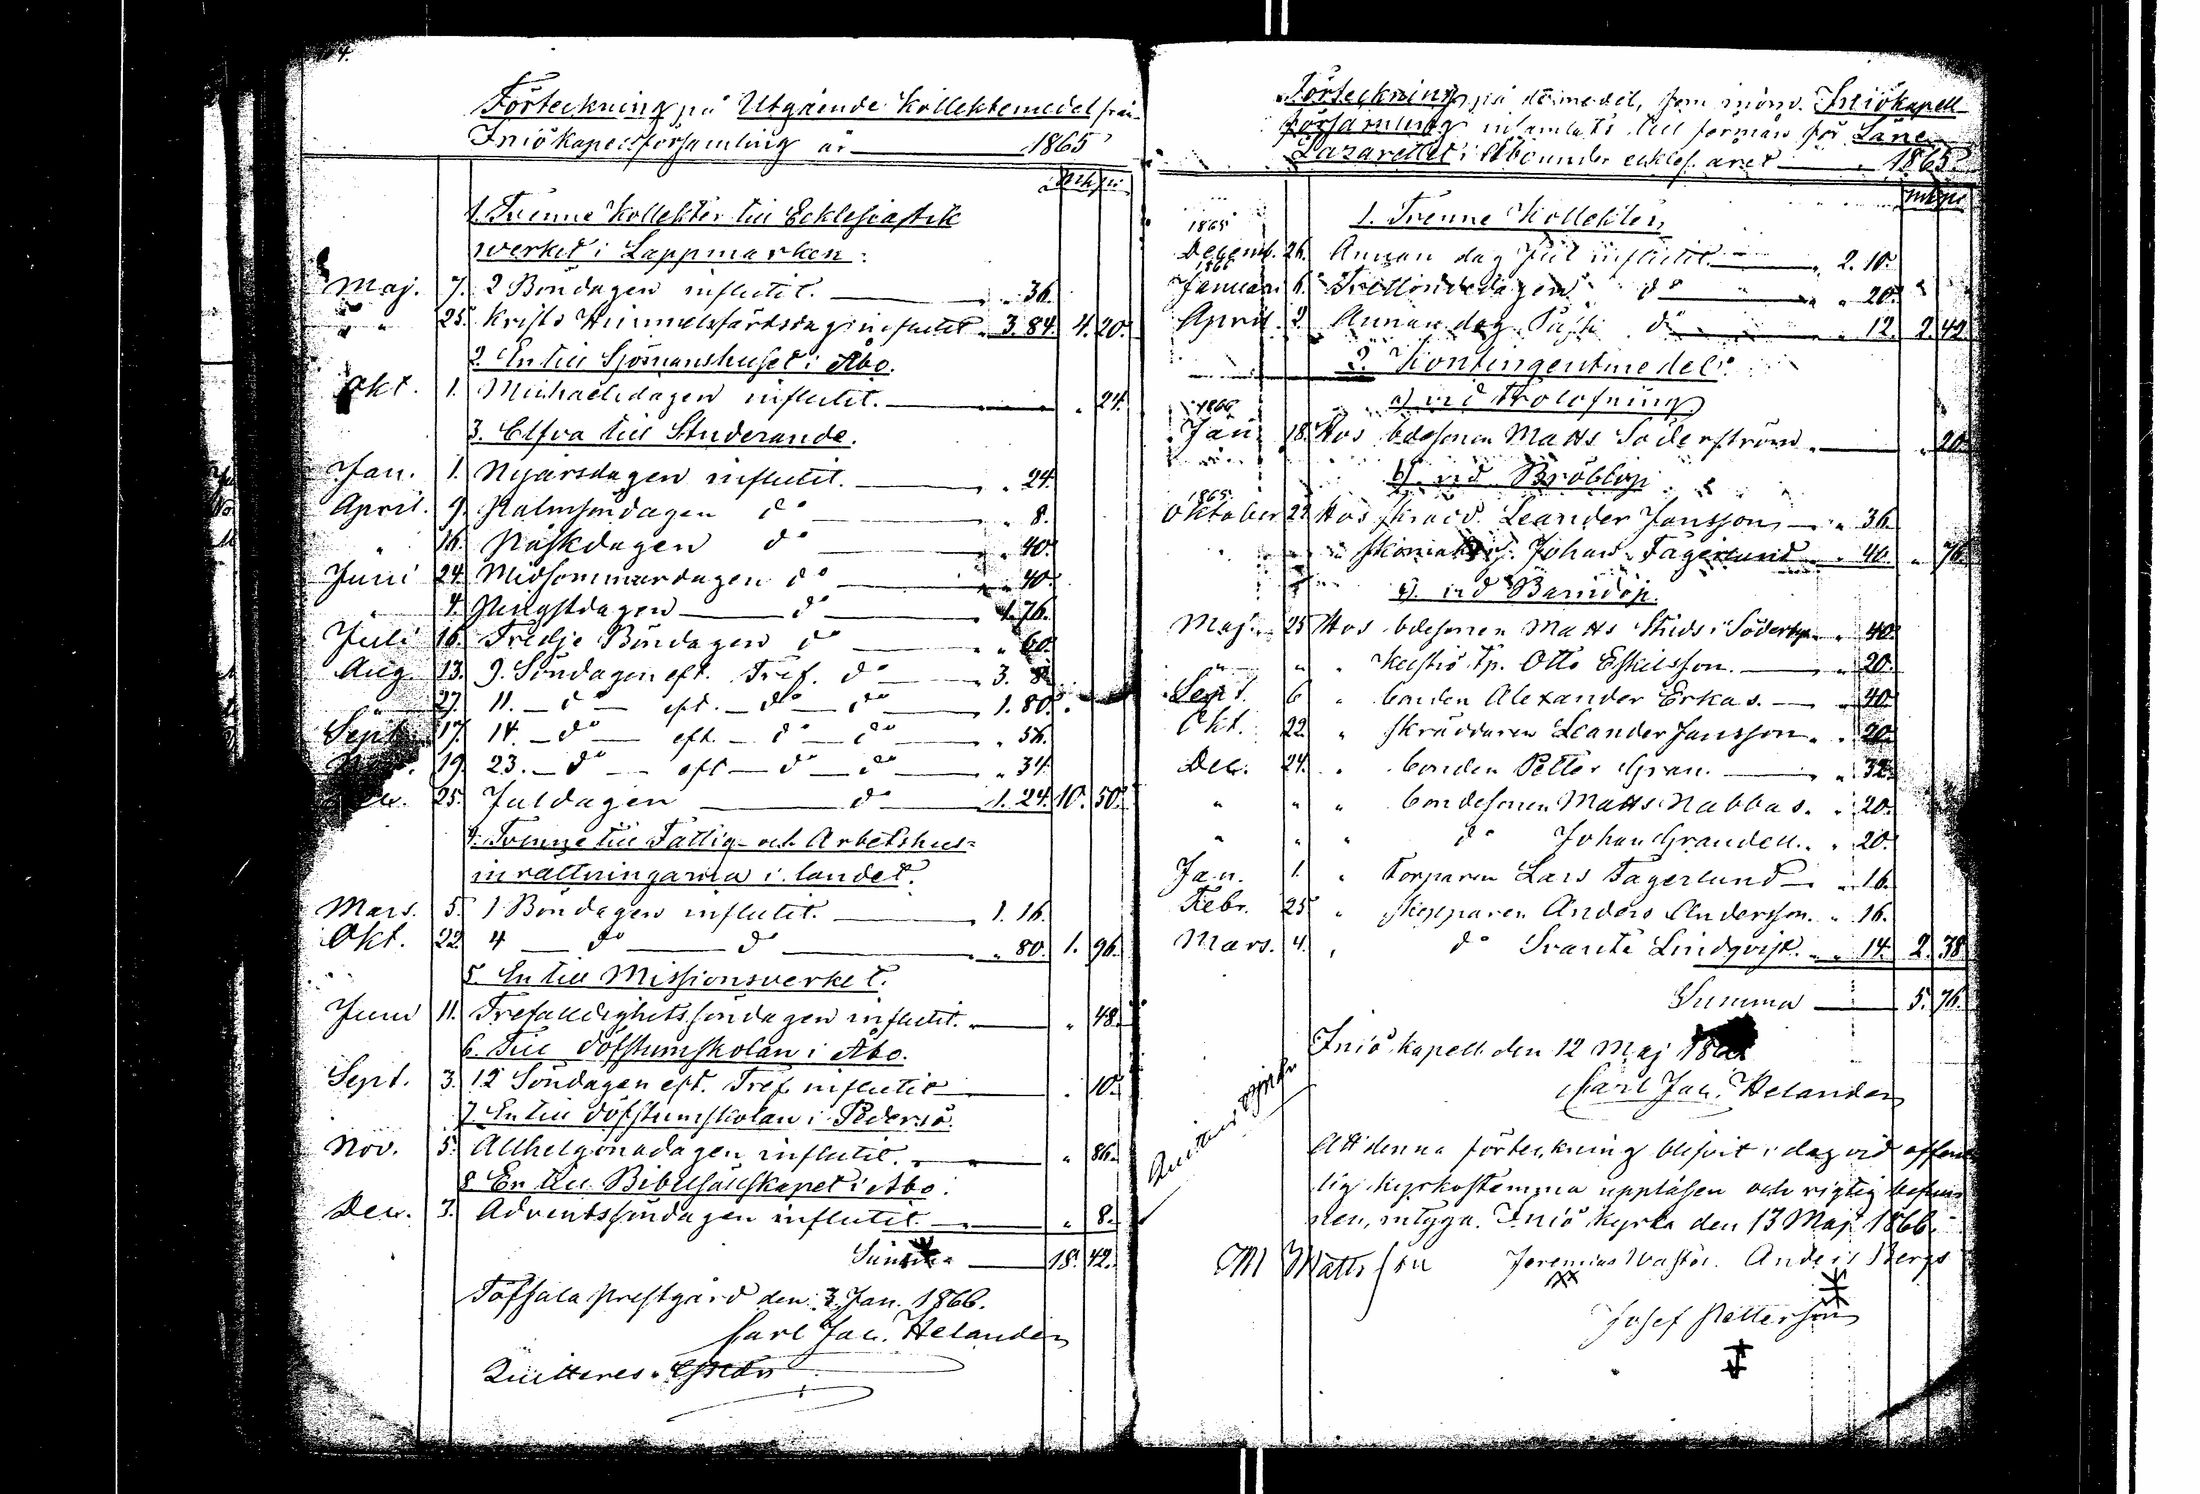 4.
Förteckning på Utgående Kollektemedel från
Iniö Kapellförsamling år 1865
Mrk pi
1. Tvenne Kollekter till Ecklesiastik
werket i Lappmarken:
Maj. 7. 2 Böndagen influtit. " 36.
" " 25. Kristi Himmelsfärdsdag influtit 3. 84. 4. 20.
2. En till Sjömanshuset i Åbo.
Okt. 1. Michaelidagen influtit. " 24.
3. Elfva till Studerande.
Jan. 1. Nyårsdagen influtit. " 24.
April. 9. Palmsöndagen do " 8.
" 16. Påskdagen do " 40.
Juni 24. Midsommardagen do " 40.
" 4. Pingstdagen do 1. 76.
Juli 16. Tredje Böndagen do " 60.
Aug. 13. 9. Söndagen eft. Tref. do 3. 8.
" 27. 11. do eft. do do 1. 80.
Sept. 17. 14. do eft. do do " 56.
19. 23. do eft do do " 34.
25. Juldagen do 1. 24. 10. 50.
4. Tvenne till Fattig- och Arbetshus-
inrättningarna i landet.
Mars. 5. 1 Böndagen influtit. 1. 16.
Okt. 22. 4 do do " 80. 1. 96.
5. En till Missionsverket.
Juni 11. Trefaldighetssöndagen influtit. " 48.
6. Till Döfstumskolan i Åbo.
Sept. 3. 12 Söndagen eft. Tref. influtit . 10.
7. En till Döfstumskolan i Pedersö.
Nov. 5. Allhelgonadagen influtit. " 86.
8 En till Bibelsällskapet i Åbo.
Dec. 3. Adventssöndagen influtit " 8.
Summa 18. 42.
Töfsala Prestgård den 3 Jan. 1866.
Carl Jac. Helander
Quitteres.
Förteckning på de medel, som inom Iniö kapell
församling insamlats till förmån för Läne
Lazarettet i Åbo under eckles. året 1865.
mk pi
1. Trenne Kollekter,
1865
Decemb. 26. Annan dag Jul influtit " 2. 10.
1866
Januari 6. Trettondedagen do " 20.
April 2. Annan dag Påsk do " 12. 2. 42.
2. Kontingentmedel:
a) vid Trolofning
1866
Jan 18. Hos bdesonen Matts Söderström " 20.
b) vid Bröllop
1865.
Oktober 22 Hos skrädd. Leander Jansson " 36.
" " Johan Fagerlund " 40. " 76.
c) vid Barndop.
Maj. 25 Hos bdesonen Matts Studs i Söderby " 40.
" " " Tp. Otto Eskilsson. " 20.
Sept. 6 " bonden Alexander Erkas. " 40.
Okt. 22 " skräddaren Leander Jansson. " 20.
Dec. 24. " bonden Petter Gran. " 32.
" " " bondesonen Matts Nabbas. " 20.
" " " do Johan Grandell. " 20.
Jan. 1. " Torparen Lars Fagerlund " 16.
Febr. 25 " skepparen Anders Andersson. " 16.
Mars. 4. " do Svante Lindqvist. " 14. 2. 38.
Summa 5. 76.
Iniö kapell den 12 Maj
Carl Jac. Helander
Quitteras,
Att denna förteckning blifvit i dag vid offent
lig kyrkostämma uppläsen och rigtig befun
nen, intyga. Iniö kyrka den 13 Maj 1866.
M Mattsson Jeremias Anders Bergs
Josef Pettersson